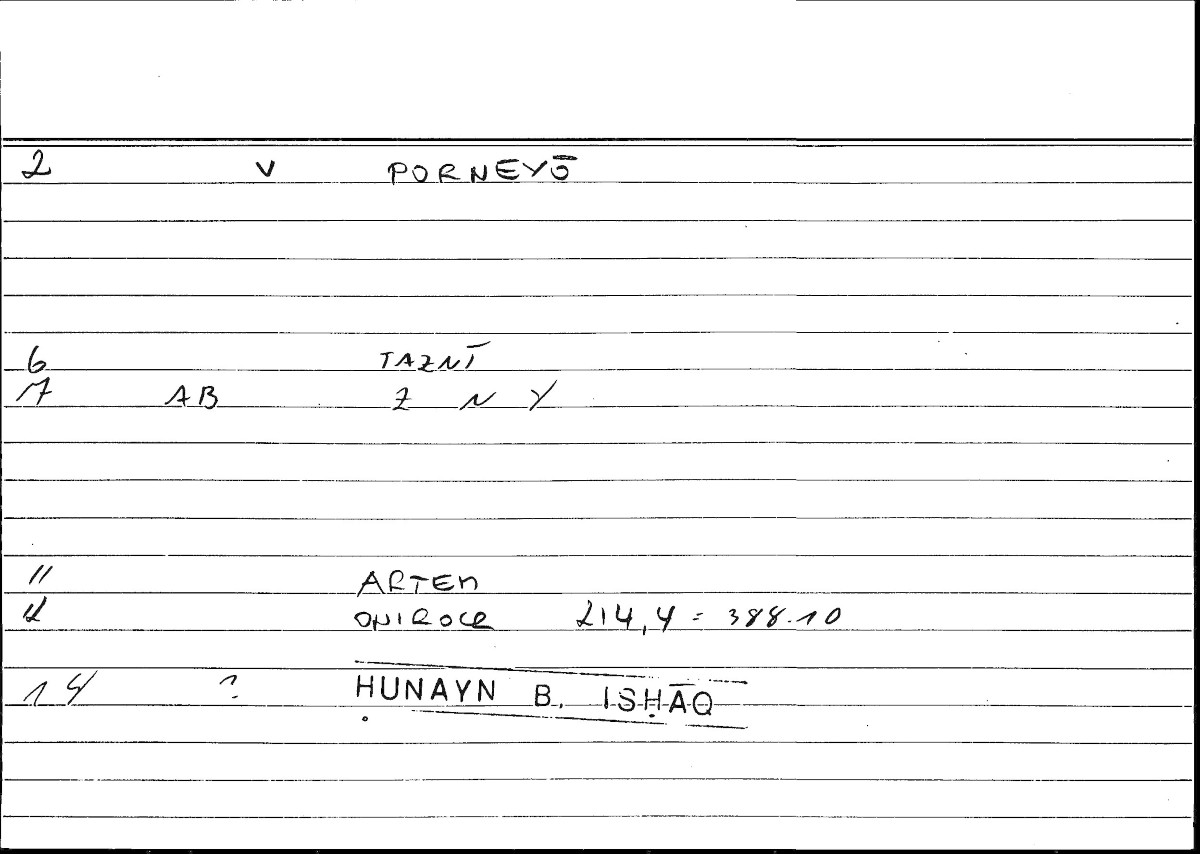 2 V PORNEYŌ
6 TAZNĪ
7 AB Z N Y
11 ARTEM
12 ONIROCR 214,4 = 388.10
14 ? ḤUNAYN B. ISḤĀQ